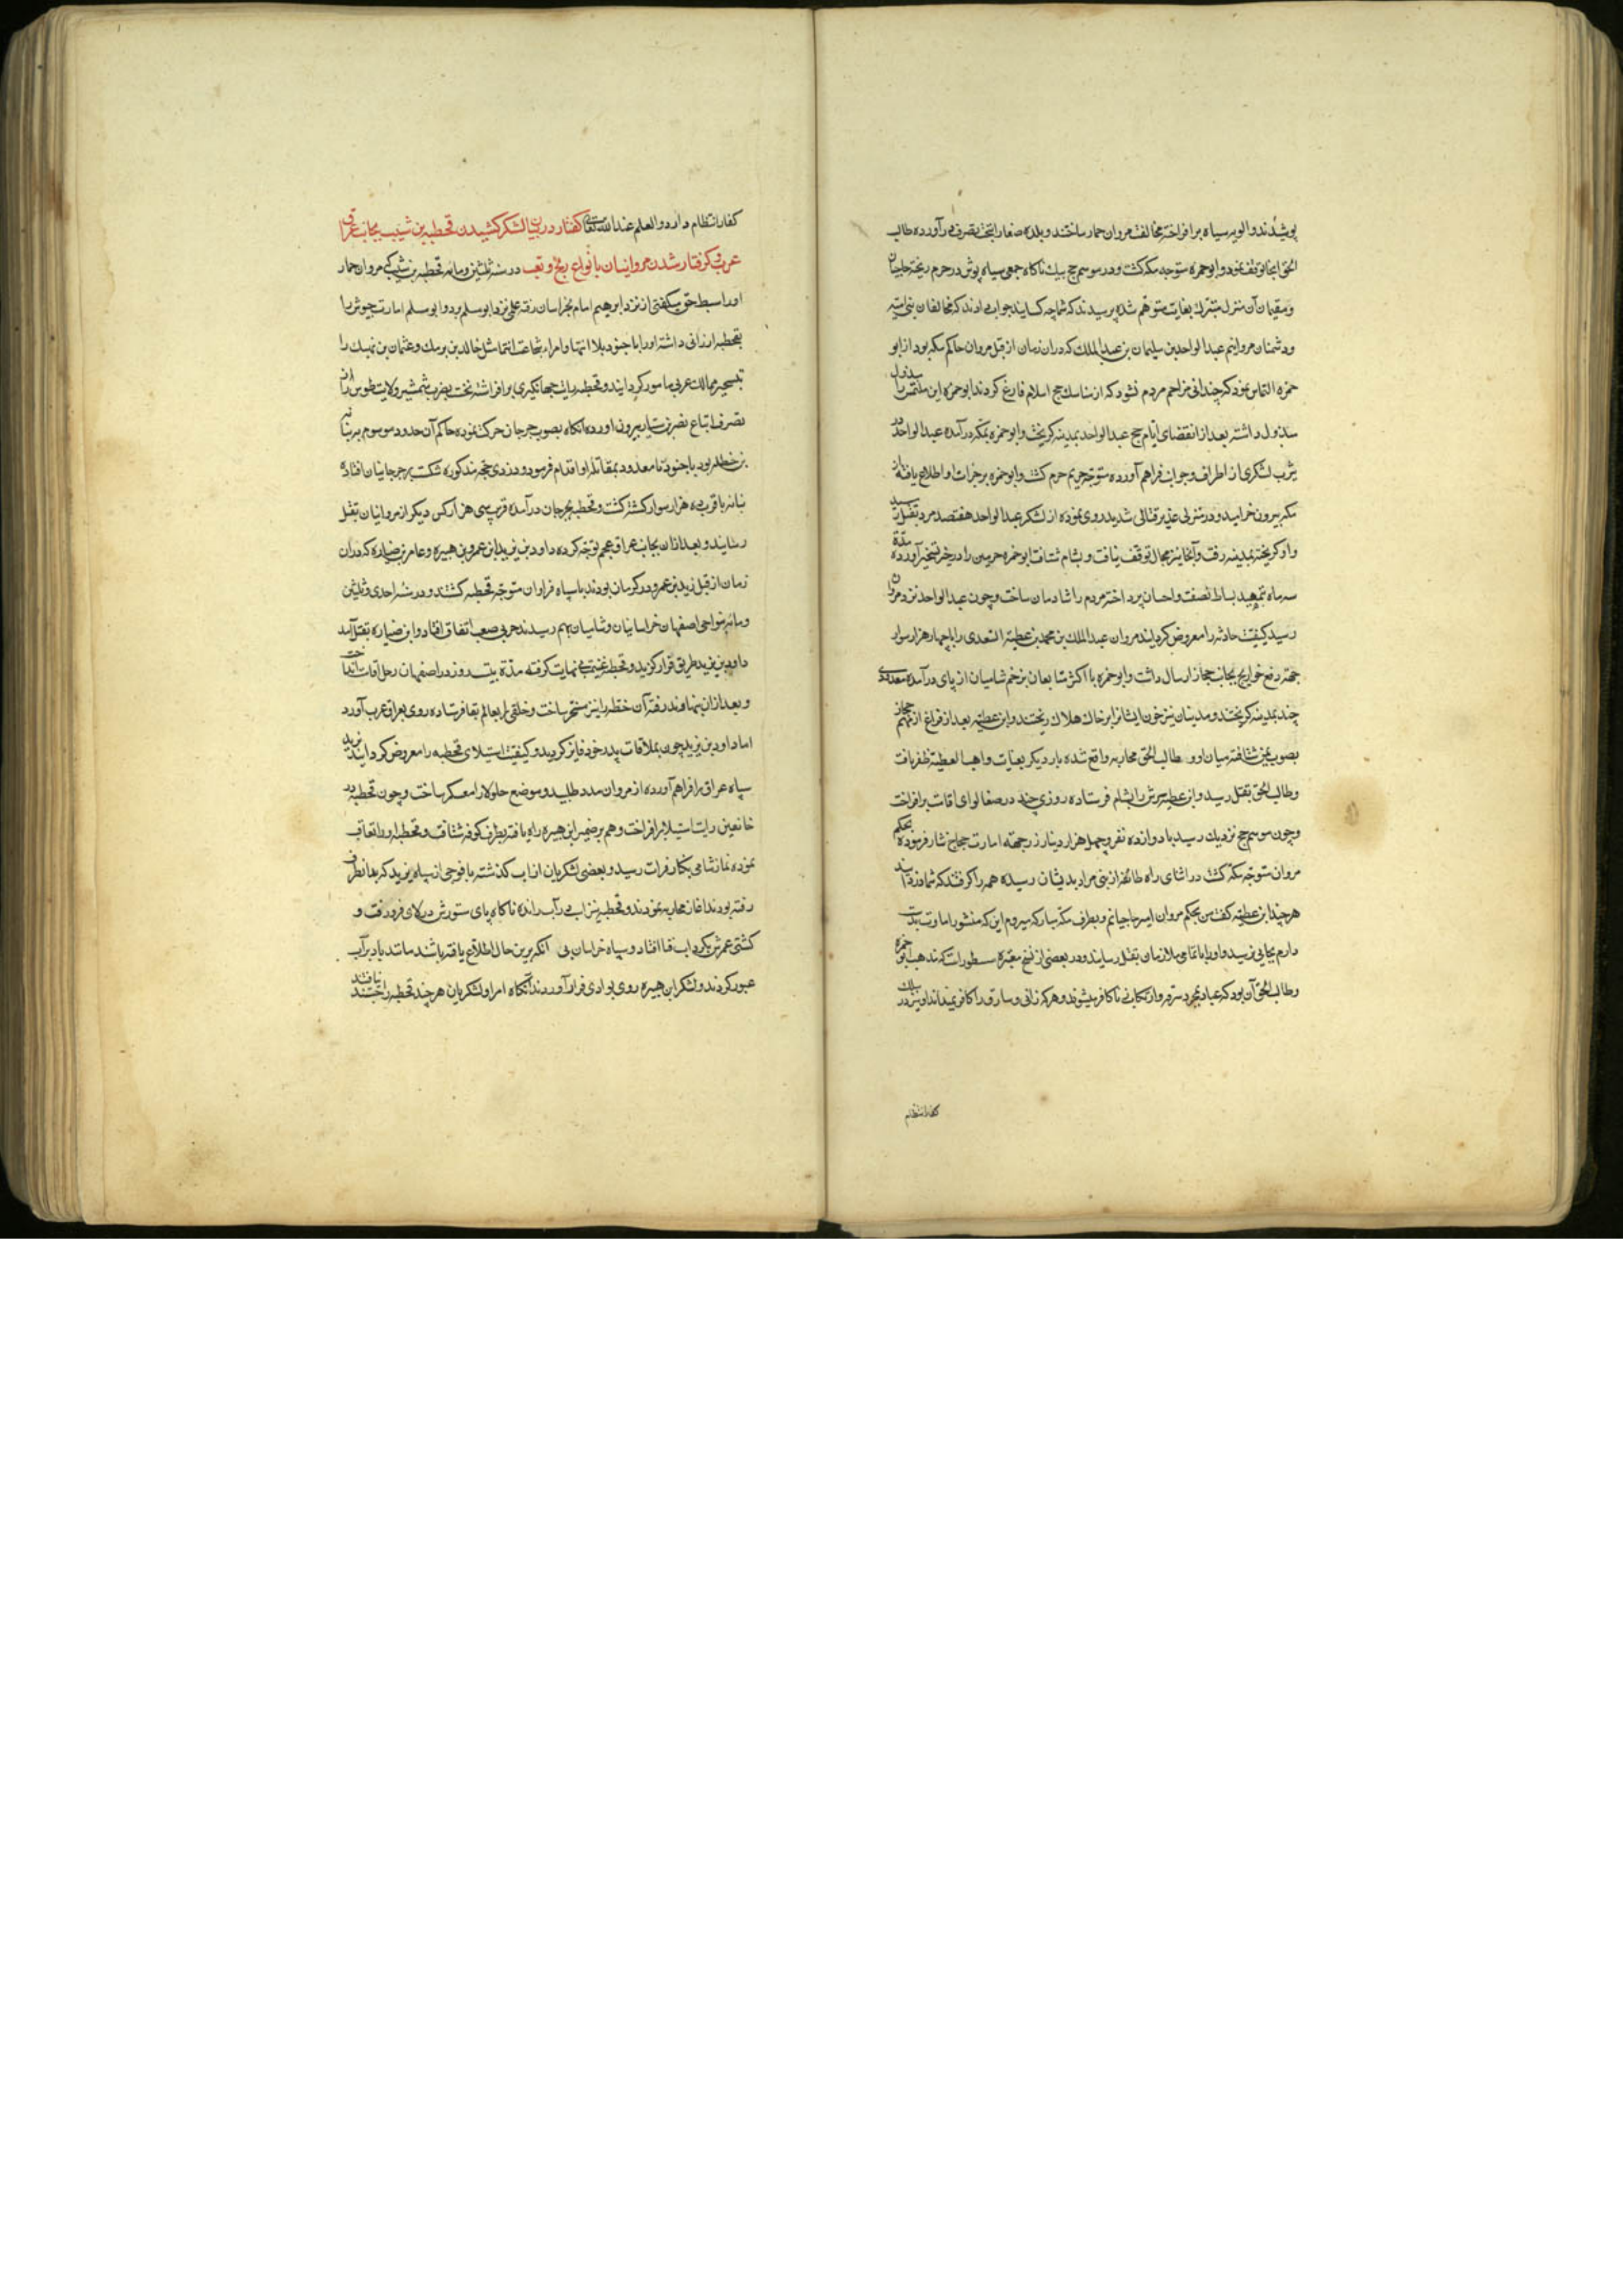 پوشیدند والویه سیاه برافراخته بمخالفت مروان حمار ساختند و بلده صنعا را بتحت تصرف درآورده طالب
الحق آنجا توقف نمود و ابوحمزه متوجه مکه گشت و در موسم حج بیک ناکاه جمعی سیاه پوش در حرم ریخته حاجیان
و مقیمان آن منزل متبرک بغایت متوهم شده پرسیدند که شما چه کسانید جواب دادند که مخالفان بنی امیه
و دشمنان مروانیم عبدالواحد بن سلیمان بن عبدالملک که دران زمان از قبل مروان حاکم مکه بود از ابو
حمزه التماس نمود که چندانی مزاحم مردم نشود که از مناسک حج اسلام فارغ کردند ابوحمزه این ملتمس را
مبذول داشته بعد از انقضای ایام حج عبدالواحد بمدینه کریخت و ابوحمزه بمکه درآمده عبدالواحد در
یثرب لشکری از اطراف و جوانب فراهم آورده متوجه حریم حرم کشت و ابوحمزه بر جرات او اطلاع یافته از
مکه بیرون خرامید و در منزلی قتالی شدید روی نموده از لشکر عبدالواحد هفتصد مرد بقتل رسید
و او کریخته بمدینه رفت و آنجا نیز مجال توقف نیافت و بشام شتافت ابوحمزه حرمین را در حیز تسخیر آورده مدة
سه ماه بتمهید بساط نصفت واحسان پرداخته مردم را شادمان ساخت و چون عبدالواحد نزد مروان
رسید کیفیت حادثه را معروض کردانید مروان عبدالملک بن محمد بن عطیة السعدی را با چهار هزار سوار
جهة دفع خوارج بجانب حجاز ارسال داشت و ابوحمزه با اکثر متابعان بزخم شامیان از پای درآمده معدودی
چند بمدینه کریختند و مدنیان نیز خون ایشانرا بر خاک هلاک ریختند و ابن عطیه بعد از فراغ از مهم حجاز
بصوب یمن شتافته میان او و طالب الحق محاربه واقع شده بار دیکر بعنایت واهب العطیة ظفر یافت
و طالب الحق بقتل رسید و ابن عطیه سرش را بشام فرستاده روزی چند در صنعا لوای اقامت برافراخت
و چون موسم حج نزدیک رسید با دوازده نفر و چهل هزار دینار زر جهة امارت حجاج نثار فرموده بحکم
مروان متوجه مکه کشت در اثنای راه طائفه از بنی مراد بدیشان رسیده همه را کرفتند که شما دزدانید
هر چند ابن عطیه کفت من بحکم مروان امیر حاجیانم و بطرف مکه مبارکه میروم اینک منشور امارت بدست
دارم بجایی نرسید و او را با تمامی ملازمان بقتل رسانیدند و در بعضی از نسخ معتبره مسطورست که مذهب ابوحمزه
و طالب الحق آن بود که عباد بمجرد سرقه و ارتکاب زنا کافر میشوند و هر که زانی و سارق را کافر نمیداند او نیز در سلک
کفار انتظام
کفار انتظام دارد والعلم عندالله تعالی کفتار در بیان لشکر کشیدن قحطبه بن شبیب بجانب عراق
عرب و کرفتار شدن مروانیان بانواع رنج و تعب در سنه ثلثین و مائه قحطبه بن شبیب که مروان حمار
او را سبط حق میکفتی از نزد ابرهیم امام بخراسان رفته علی نزد ابومسلم برد و ابومسلم امارت جیوش را
بقحطبه ارزانی داشته او را با جنود بلا انتها و امراء شجاعت انتما مثل خالد بن برمک و عثمان بن نهیک را
بتسخیر ممالک عربی مامور کردانیدند و قحطبه رایت جهانکیری برافراشته نخست بضرب شمشیر ولایت طوس را از
تصرف اتباع نصر بن سیار بیرون آورده آنکاه بصوب جرجان حرکت نموده حاکم آن حدود موسوم به نباته
بن حنظله بود با جنود نامعدود بمقاتله او اقدام فرمود و در ذی حجه مذکوره شکست بر جرجانیان افتاده
نباته با قرب ده هزار سوار کشته کشت و قحطبه بجرجان درآمده قرب سی هزار کس دیکر از مروانیان بقتل
رسانید و بعد از آن بجانب عراق عجم توجه کرده داود بن یزید ابن عمرو بن هبیره و عامر بن ضباره که دران
زمان از قبل یزید بن عمرو در کرمان بودند با سپاه فراوان متوجه قحطبه کشتند و در سنه احدی و ثلثین
و مائه بنواحی اصفهان خراسانیان و شامیان بهم رسیدند حربی صعب اتفاق افتاد و ابن ضباره بقتل آمد
داود بن یزید طریق فرار کزید و قحطبه غنیمت بی نهایت کرفته مدة بیست روز در اصفهان رحل اقامت انداخت
و بعد از ان بنهاوند رفته آن خطه را نیز مسخر ساخت و خلقی را بعالم بقا فرستاده روی بعراق عرب آورد
اما داود بن یزید چون بملاقات پدر خود فایز کردید و کیفیت استیلای قحطبه را معروض کردانید یزید
سپاه عراق را فراهم آورده از مروان مدد طلبید و موضع جلولا را معسکر ساخت و چون قحطبه در
خانقین رایت استیلا برافراخت وهم بر ضمیر ابن هبیره راه یافته بطرف کوفه شتافت و قحطبه او را تعاقب
نموده نماز شامی بکنار فرات رسید و بعضی لشکریان از آب کذشته با فوجی از سپاه یزید که بدانطرف
رفته بودند آغاز محاربه نمودند و قحطبه نیز اسب در آب رانده ناکاه پای ستورش در لای فرو رفت و
کشتی عمرش بکرداب فنا افتاد و سپاه خراسان بی آنکه برین حال اطلاع یافته باشند مانند باد بر آب
عبور کردند و لشکر ابن هبیره روی بوادی فرار آوردند آنکاه امرا و لشکریان هر چند قحطبه را جستند نیافتند